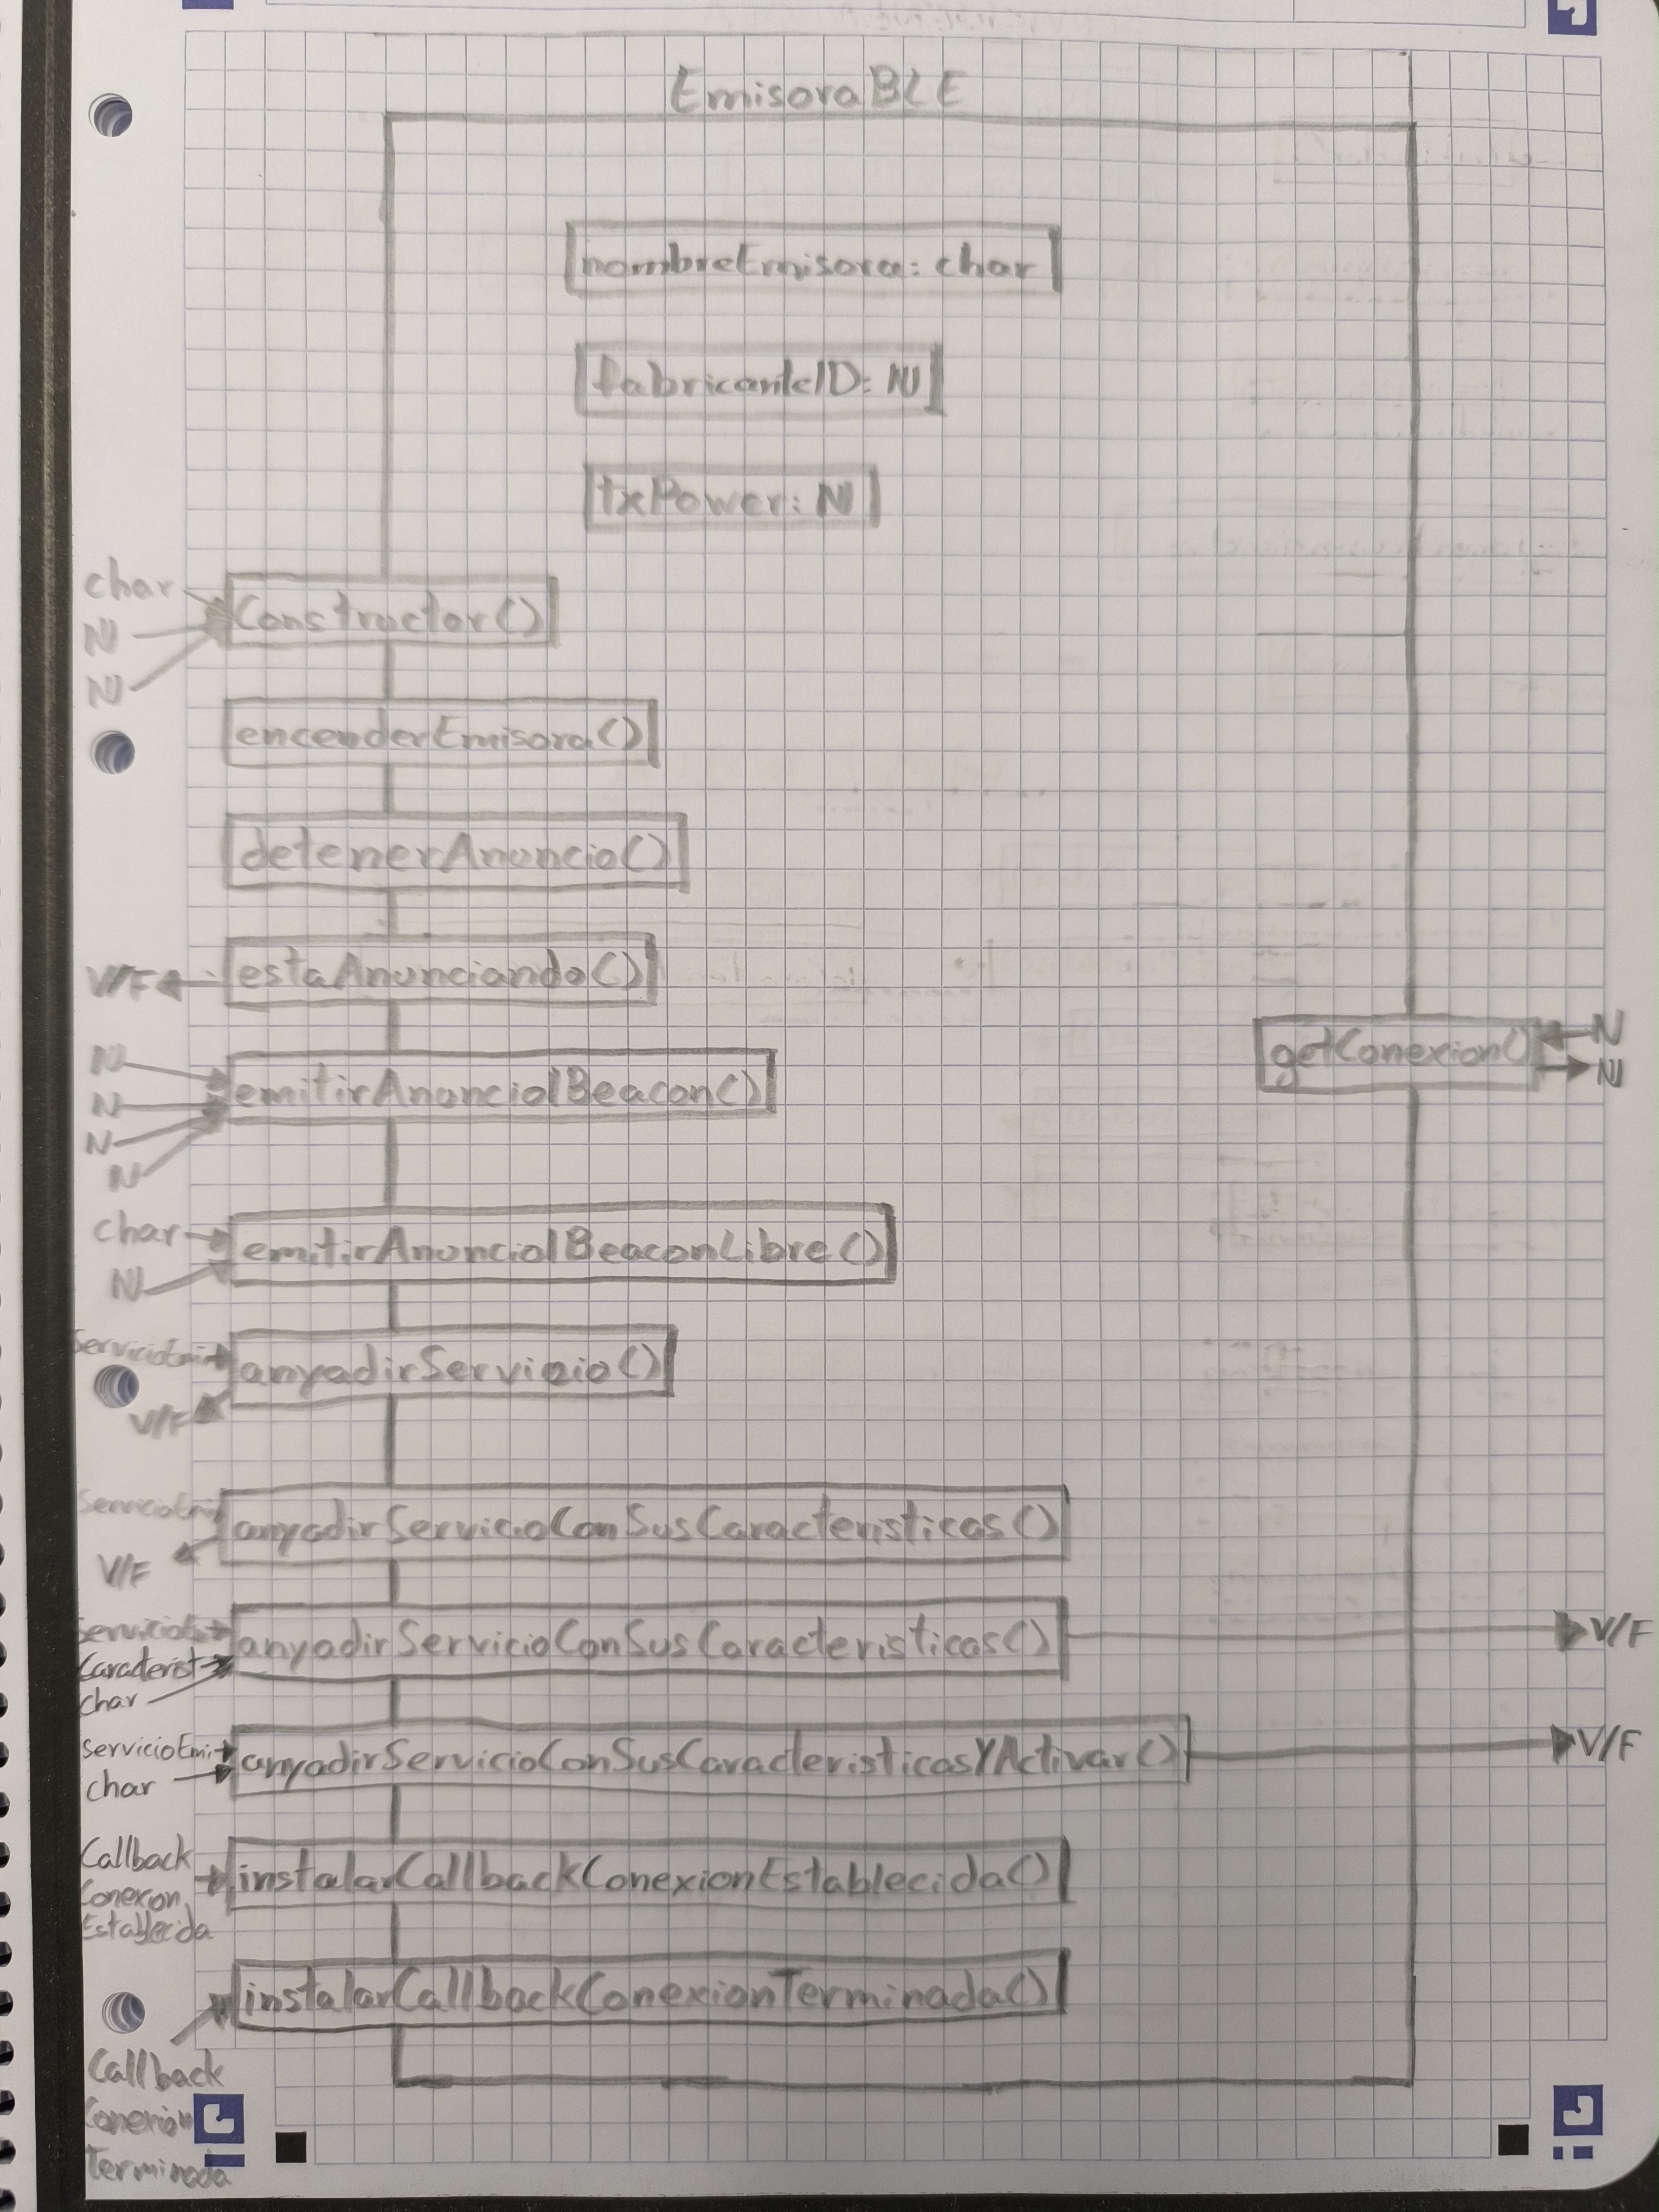 EmisoraBLE
nombreEmisora: char
fabricanteID: N
txPower: N
char
N
N
Constructor()
encenderEmisora()
detenerAnuncio()
V/F
estaAnunciando()
getConexion()
N
N
N
N
N
N
emitirAnuncioIBeacon()
char
N
emitirAnuncioIBeaconLibre()
ServicioEmi
V/F
anyadirServicio()
ServicioEmi
V/F
anyadirServicioConSusCaracteristicas()
ServicioEmi
Caracterist
char
anyadirServicioConSusCaracteristicas()
V/F
ServicioEmi
char
anyadirServicioConSusCaracteristicasYActivar()
V/F
Callback
Conexion
Establecida
instalarCallbackConexionEstablecida()
instalarCallbackConexionTerminada()
Callback
Conexion
Terminada